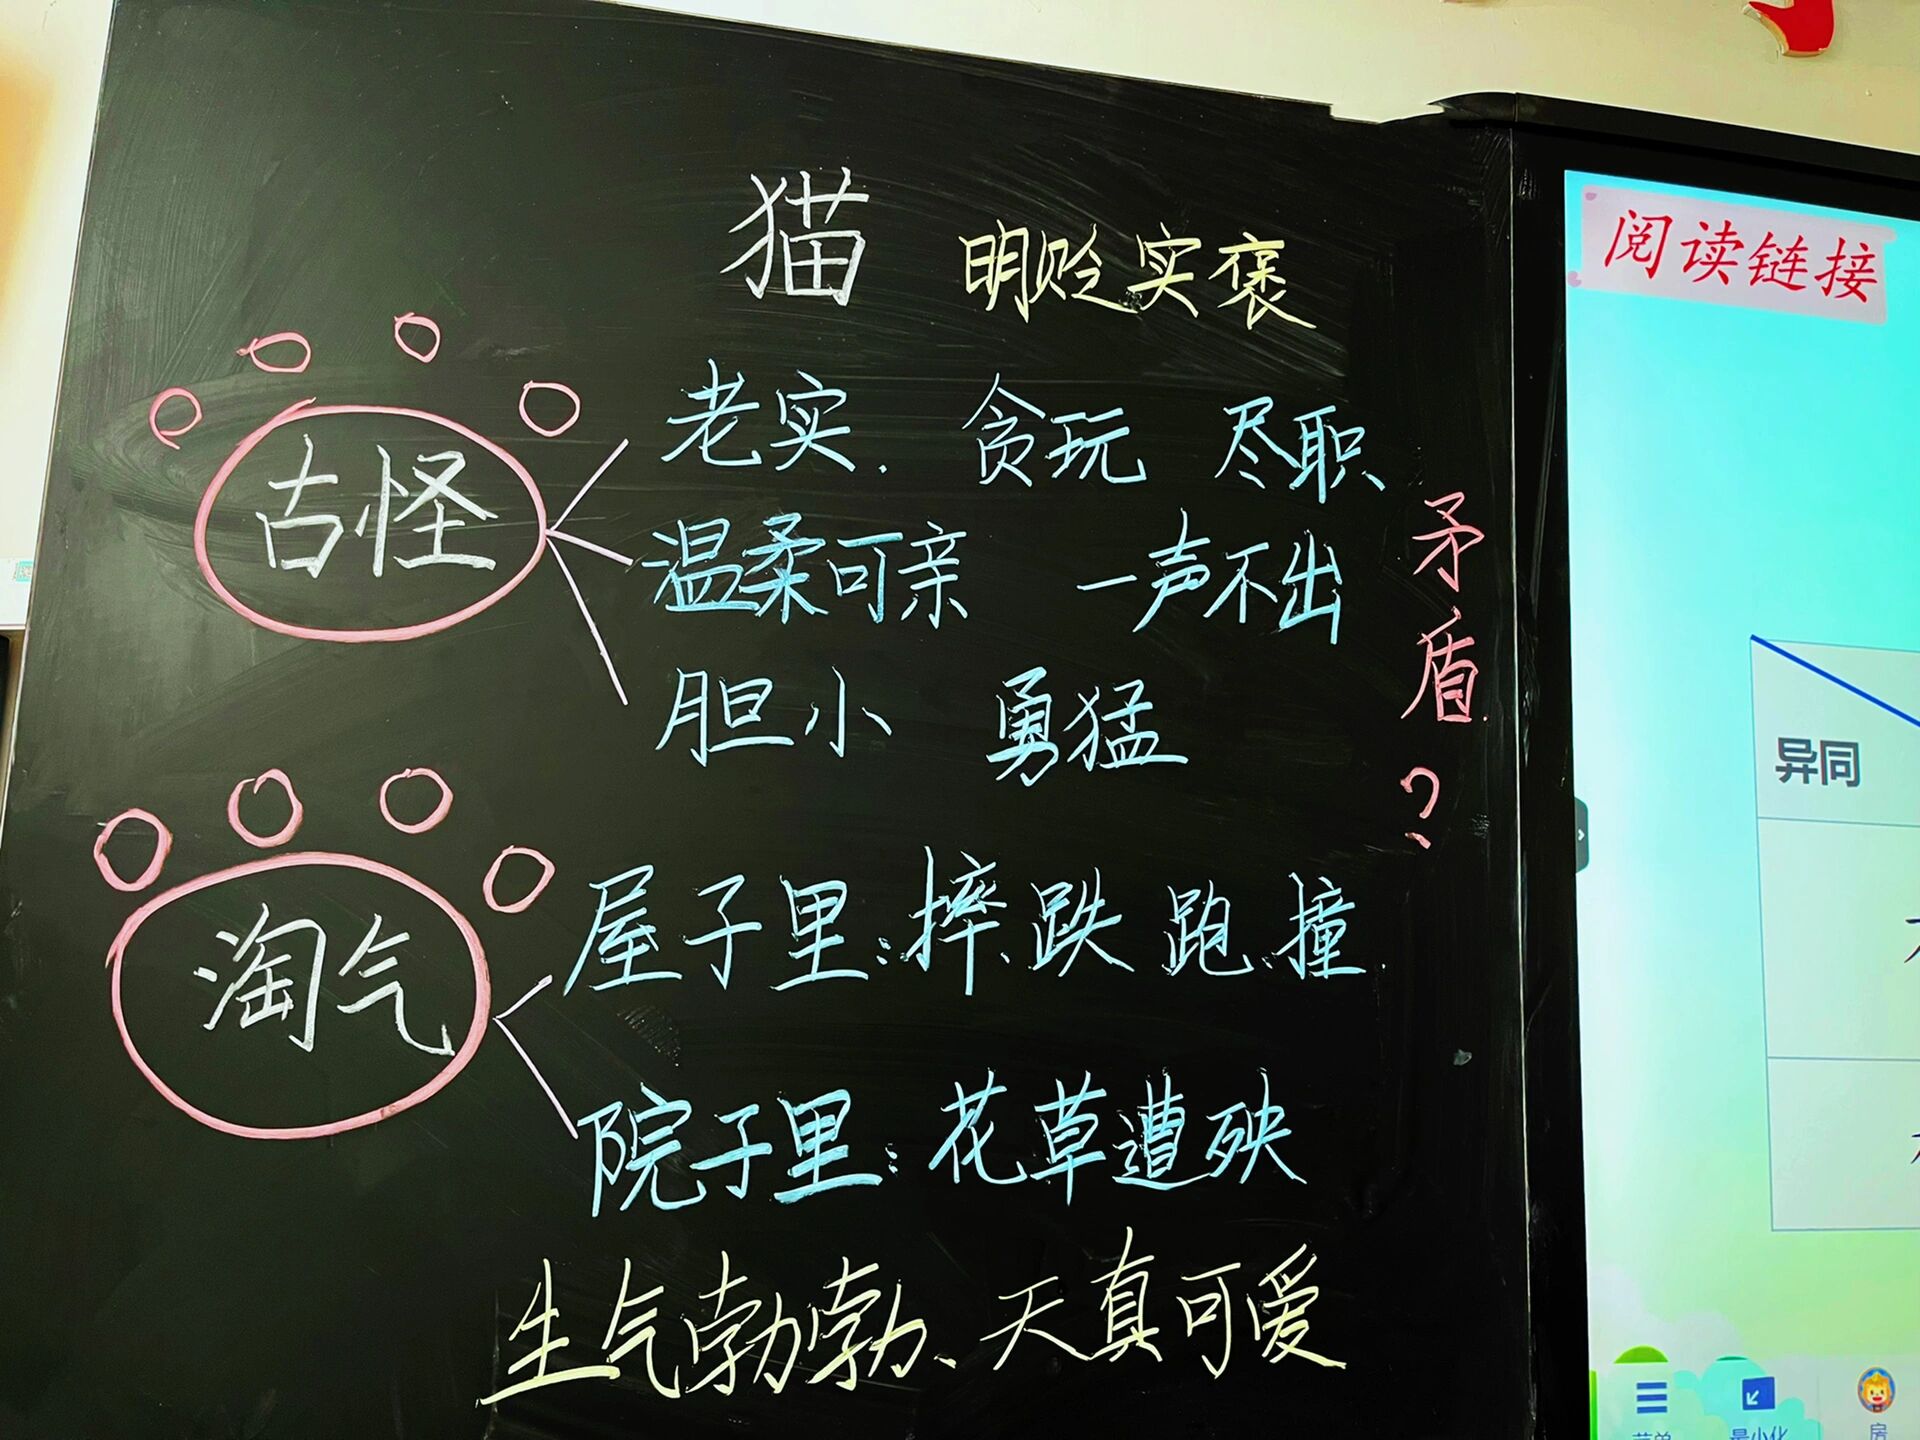 猫 明贬实褒
古怪
老实. 贪玩 尽职
温柔可亲 一声不出
胆小 勇猛
矛盾?
淘气
屋子里:摔、跌 跑、撞
院子里:花草遭殃
生气勃勃、天真可爱
阅读链接
异同